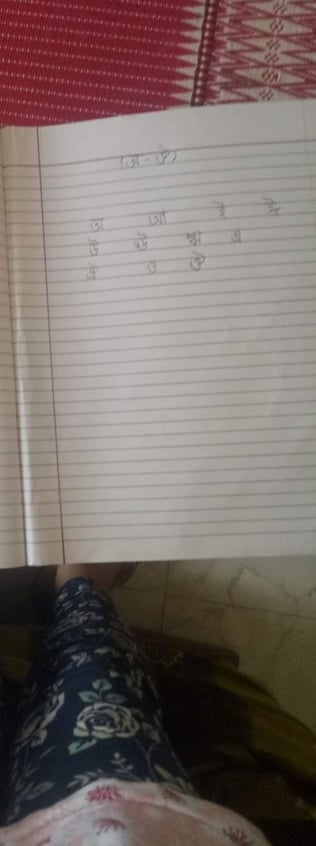 (অ - ঔ)
অ আ ই ঈ
উ ঊ ঋ এ
ঐ ও ঔ